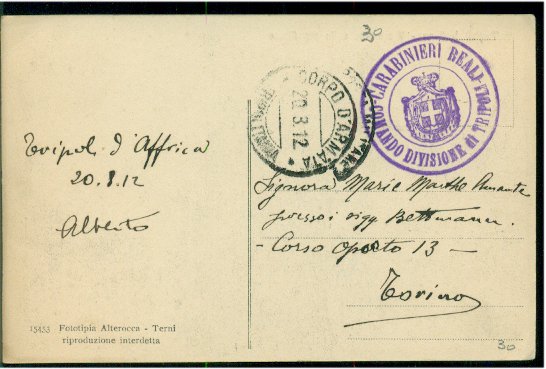 30
CARABINIERI REALI - COMANDO DIVISIONE di TRIPOLI
CORPO D'ARMATA
20.8.12
Tripoli d'Affrica
20.8.12
Alberto
Signora Marie Marthe
presso i sigg. Bettmann
- Corso Oporto 13 -
Torino
15453 Fototipia Alterocca - Terni
riproduzione interdetta
30